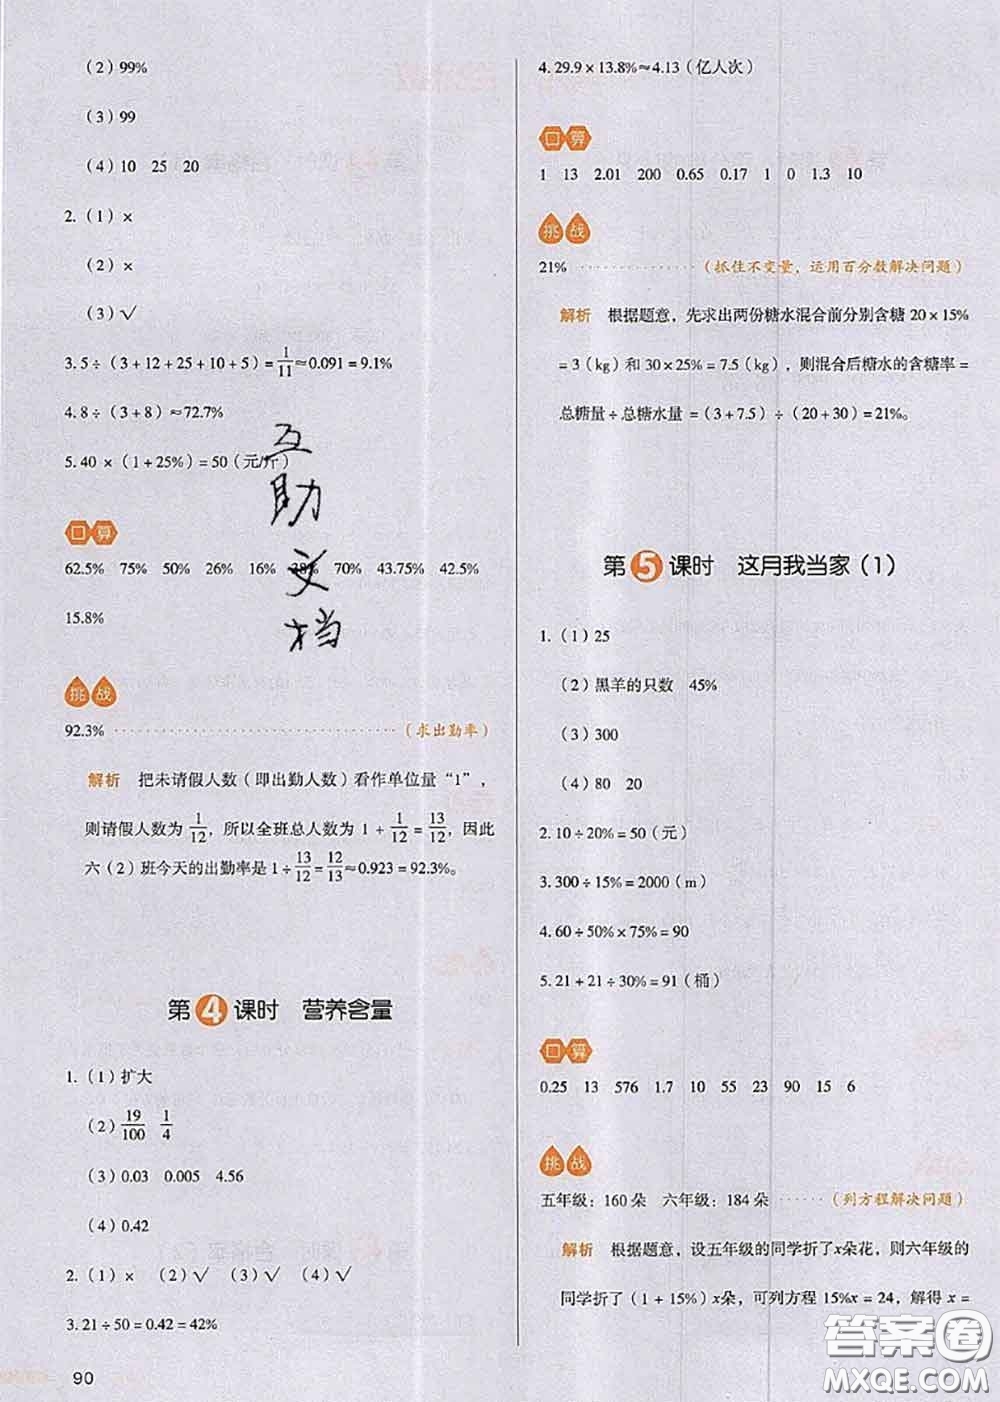 （2）99%
（3）99
（4）10　25　20
2.（1）×
（2）×
（3）√
3. 5÷（3+12+25+10+5）= 1/11 ≈0.091=9.1%
4. 8÷（3+8）≈72.7%
5. 40×（1+25%）=50（元/斤）
口算
62.5%　75%　50%　26%　16%　38%　70%　43.75%　42.5%
15.8%
挑战
92.3% ……（求出勤率）
解析　把未请假人数（即出勤人数）看作单位量“1”，
则请假人数为 1/12，所以全班总人数为 1+1/12=13/12，因此
六（2）班今天的出勤率是 1÷13/12=12/13≈0.923=92.3%。
互助文档
第4课时　营养含量
1.（1）扩大
（2）19/100　1/4
（3）0.03　0.005　4.56
（4）0.42
2.（1）×　（2）√　（3）√　（4）√
3. 21÷50=0.42=42%
90
4. 29.9×13.8%≈4.13（亿人次）
口算
1　13　2.01　200　0.65　0.17　1　0　1.3　10
挑战
21% ……（抓住不变量，运用百分数解决问题）
解析　根据题意，先求出两份糖水混合前分别含糖 20×15%
=3（kg）和 30×25%=7.5（kg），则混合后糖水的含糖率=
总糖量÷总糖水量=（3+7.5）÷（20+30）=21%。
第5课时　这月我当家（1）
1.（1）25
（2）黑羊的只数　45%
（3）300
（4）80　20
2. 10÷20%=50（元）
3. 300÷15%=2000（m）
4. 60÷50%×75%=90
5. 21+21÷30%=91（桶）
口算
0.25　13　576　1.7　10　55　23　90　15　6
挑战
五年级：160朵　六年级：184朵 ……（列方程解决问题）
解析　根据题意，设五年级的同学折了x朵花，则六年级的
同学折了（1+15%）x朵，可列方程 15%x=24，解得 x=
答案圈
MXQE.COM